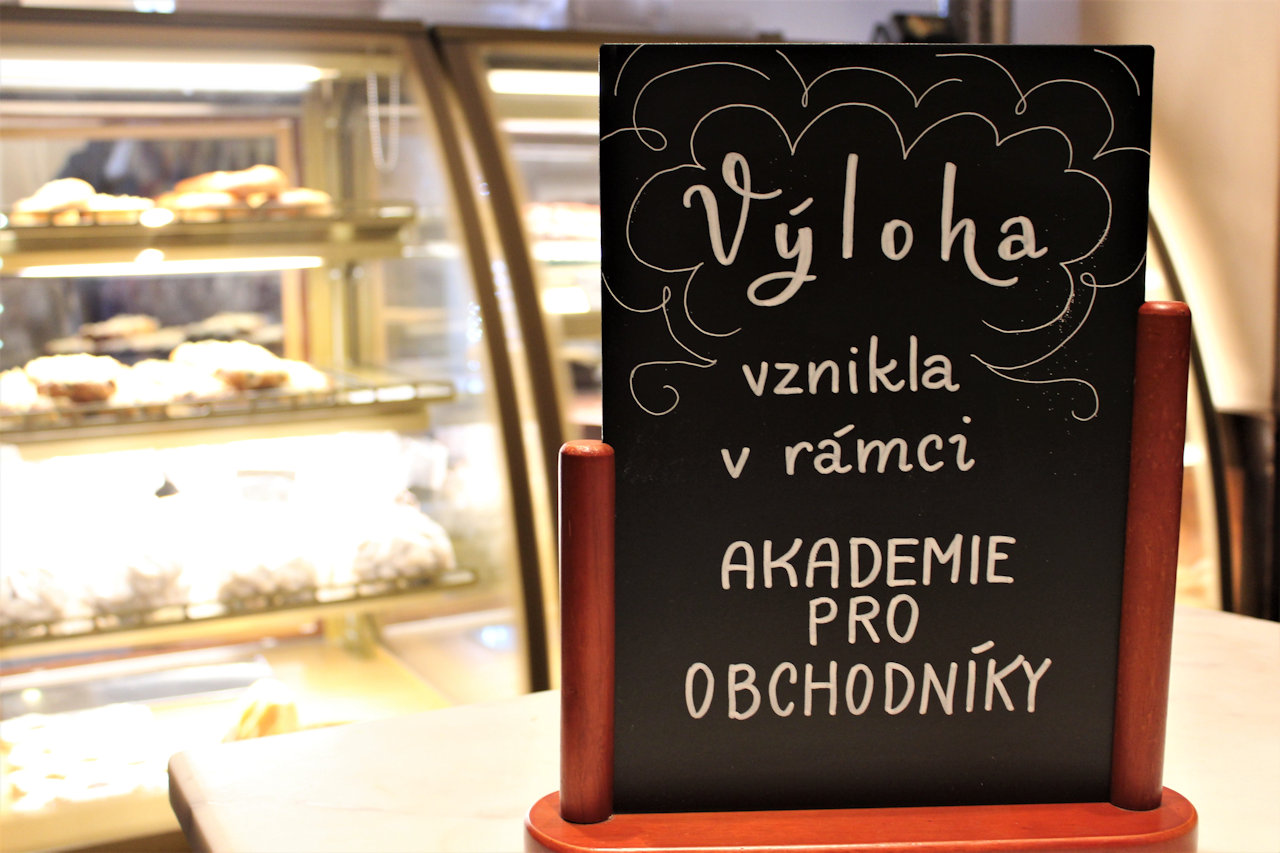 Výloha
vznikla
v rámci
AKADEMIE
PRO
OBCHODNÍKY